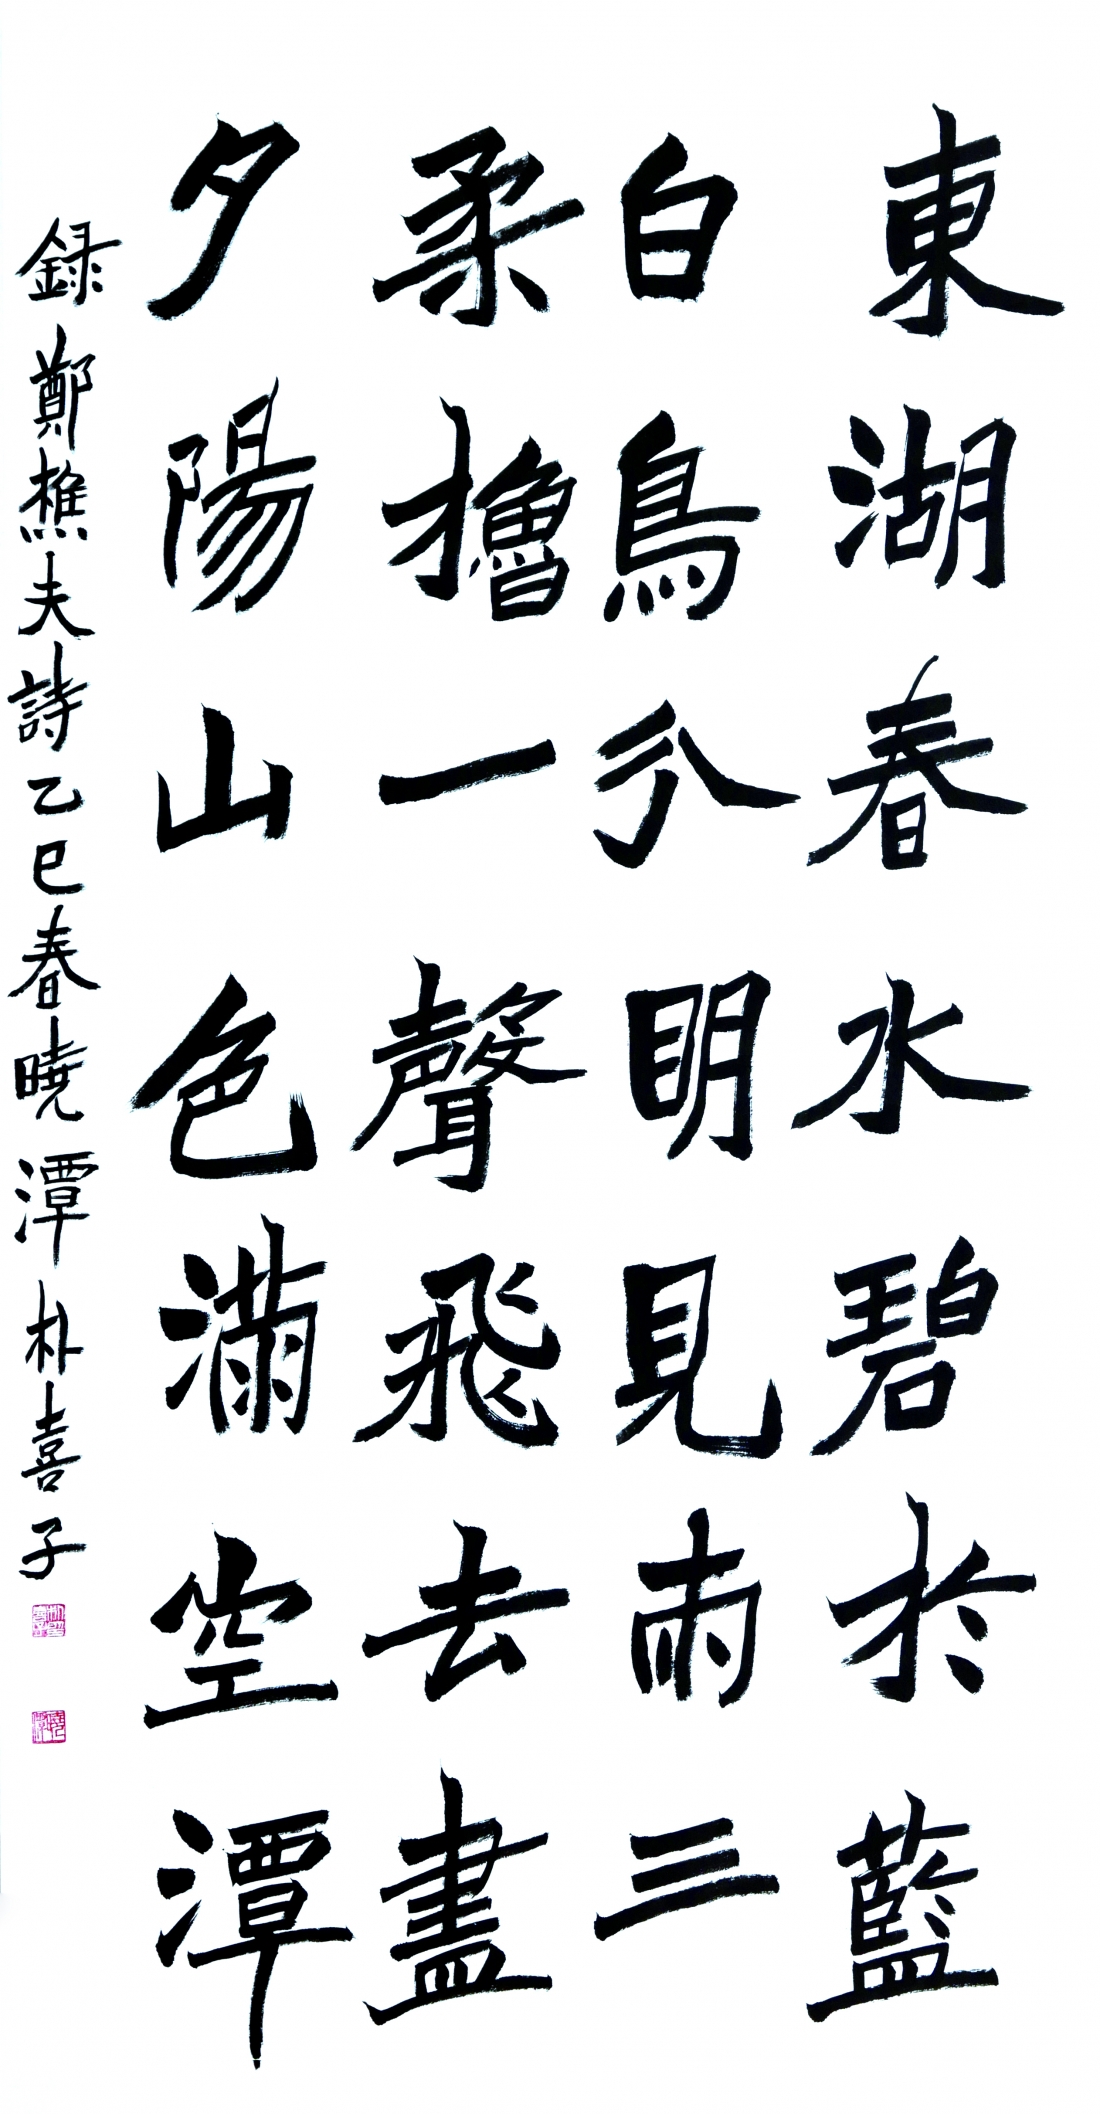 東湖春水碧於藍
白鳥分明見兩三
柔擼一聲飛去盡
夕陽山色滿空潭
録鄭樵夫詩乙巳春曉潭朴喜子